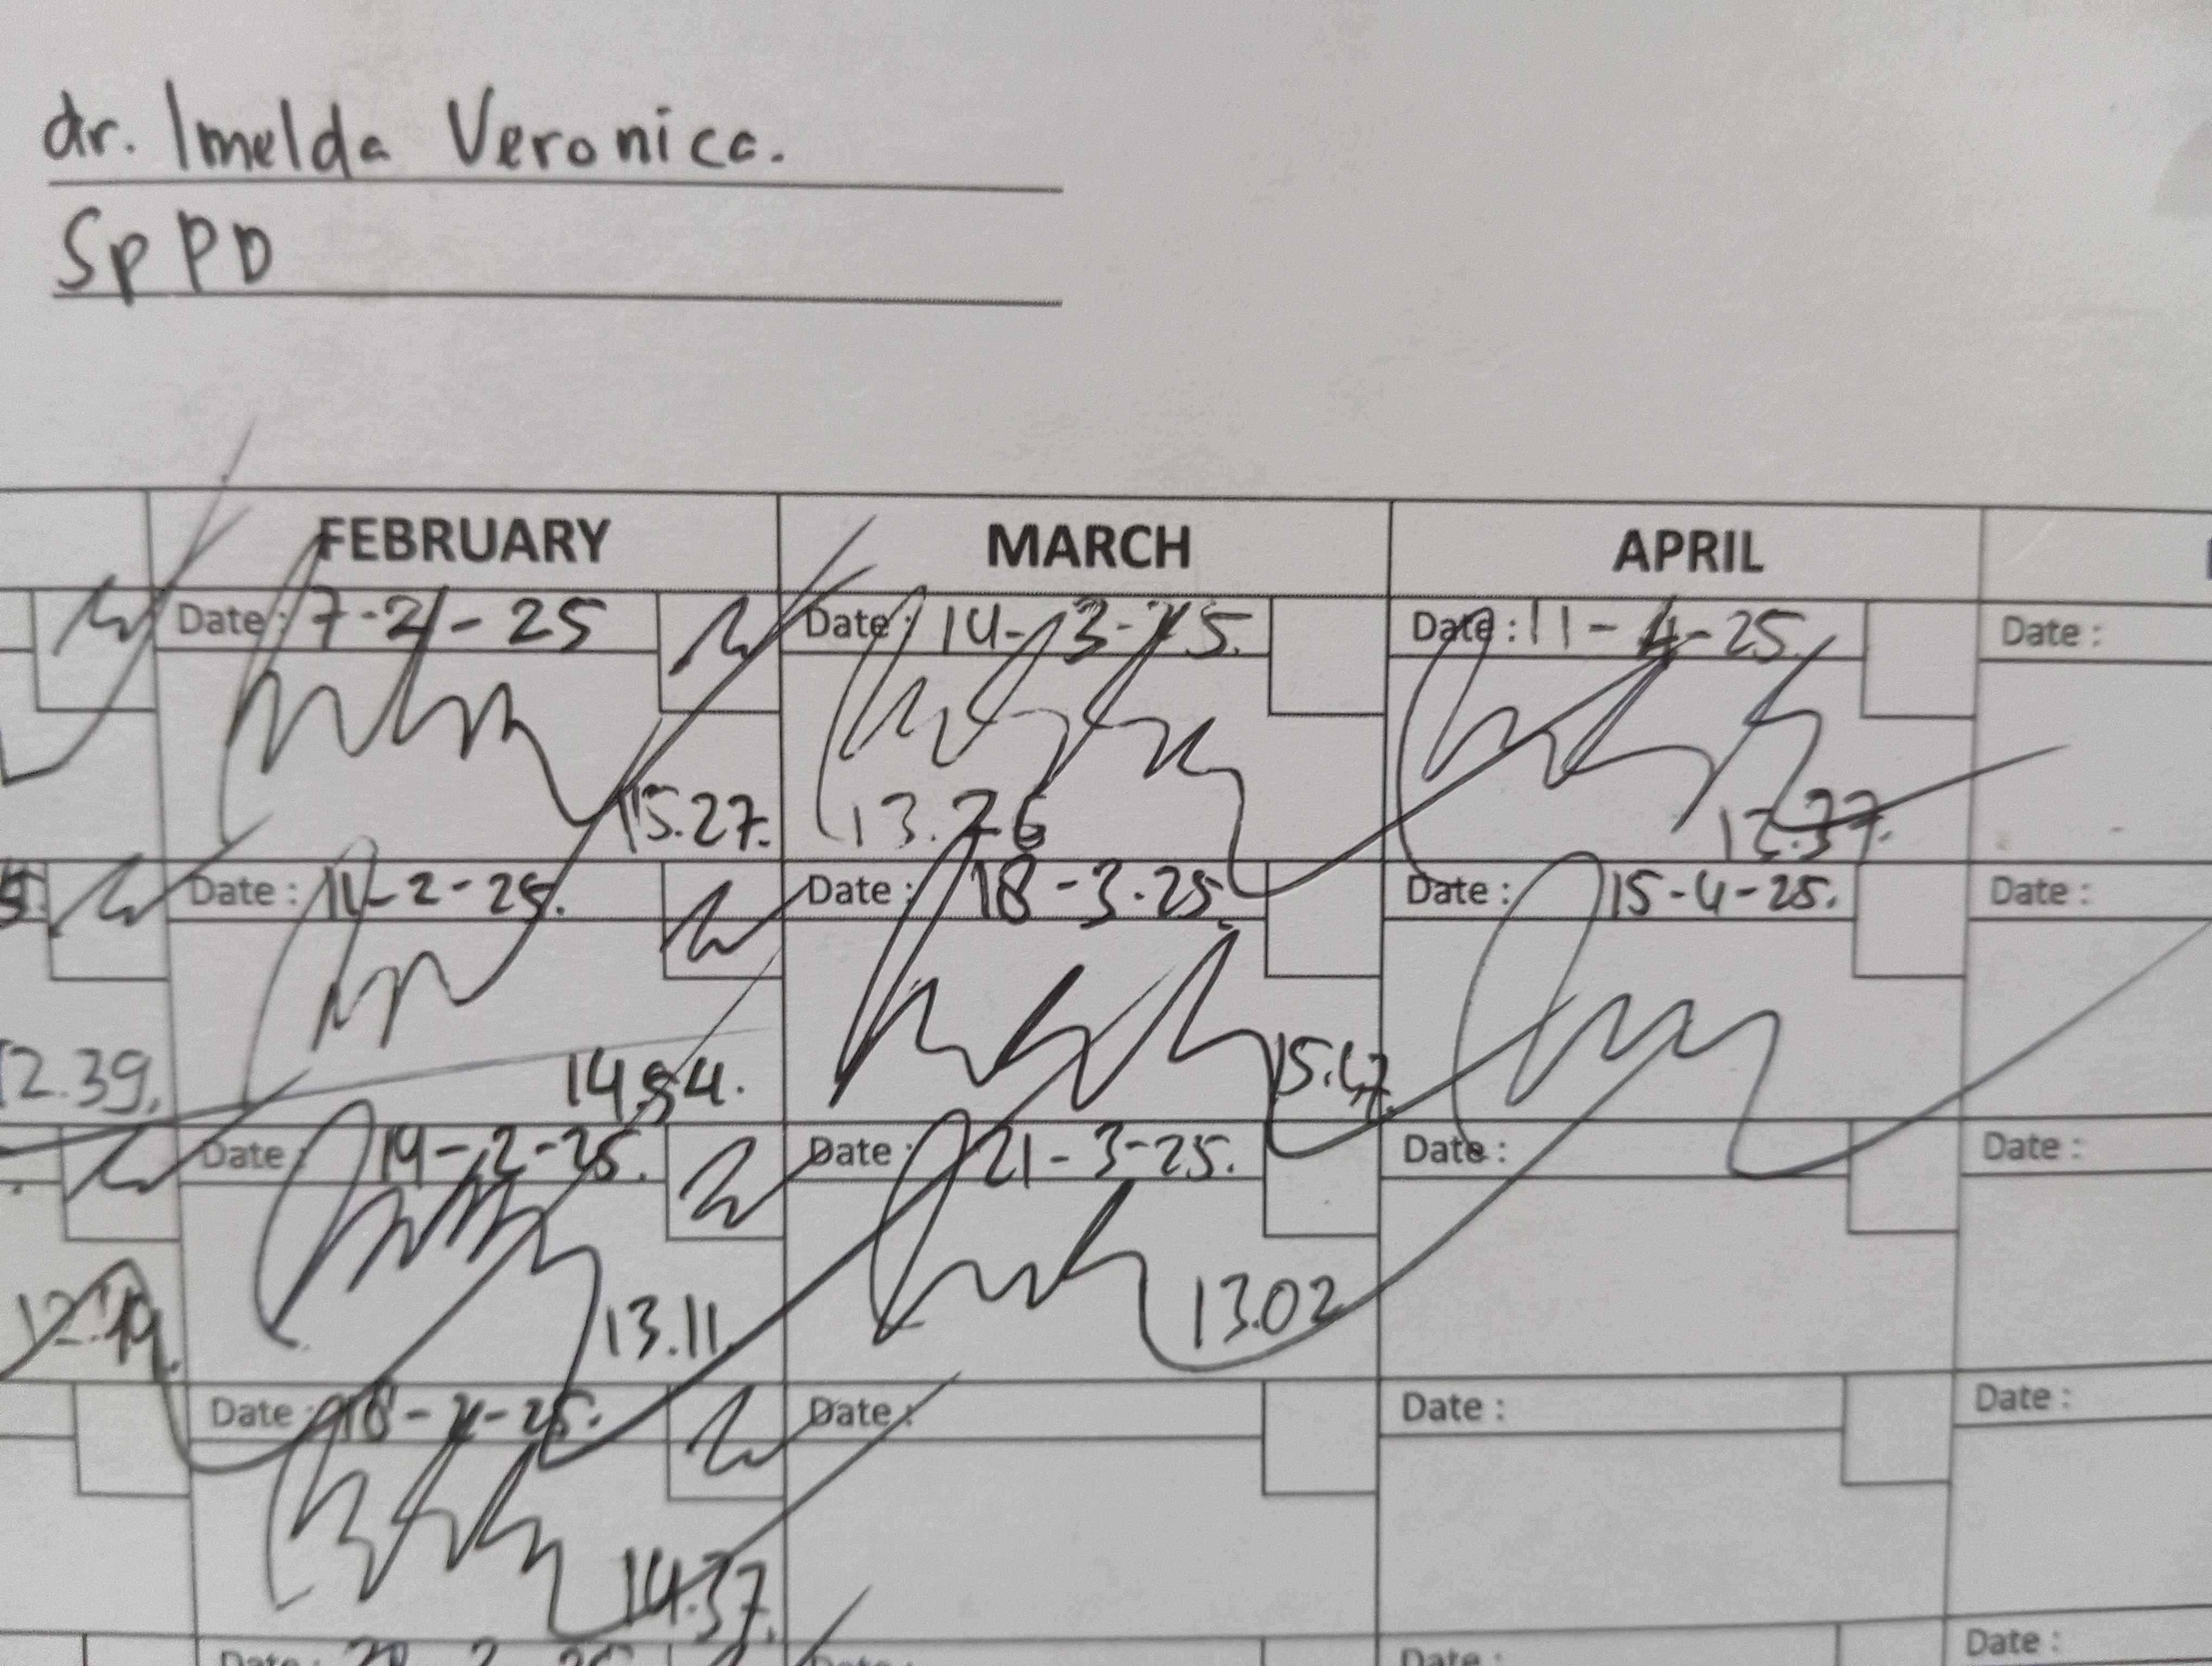 dr. Imelda Veronica.
SpPD
FEBRUARY MARCH APRIL
Date : 7-2-25 Date : 14-3-25. Date : 11-4-25. Date :
15.27. 13.26 12.37.
Date : 11-2-25. Date : 18-3-25 Date : 15-4-25. Date :
12.39. 14.54. 15.47
Date : 14-2-25. Date : 21-3-25. Date : Date :
12.19. 13.11. 13.02
Date : 18-2-25. Date : Date : Date :
14.37.
Date : Date : Date : Date :